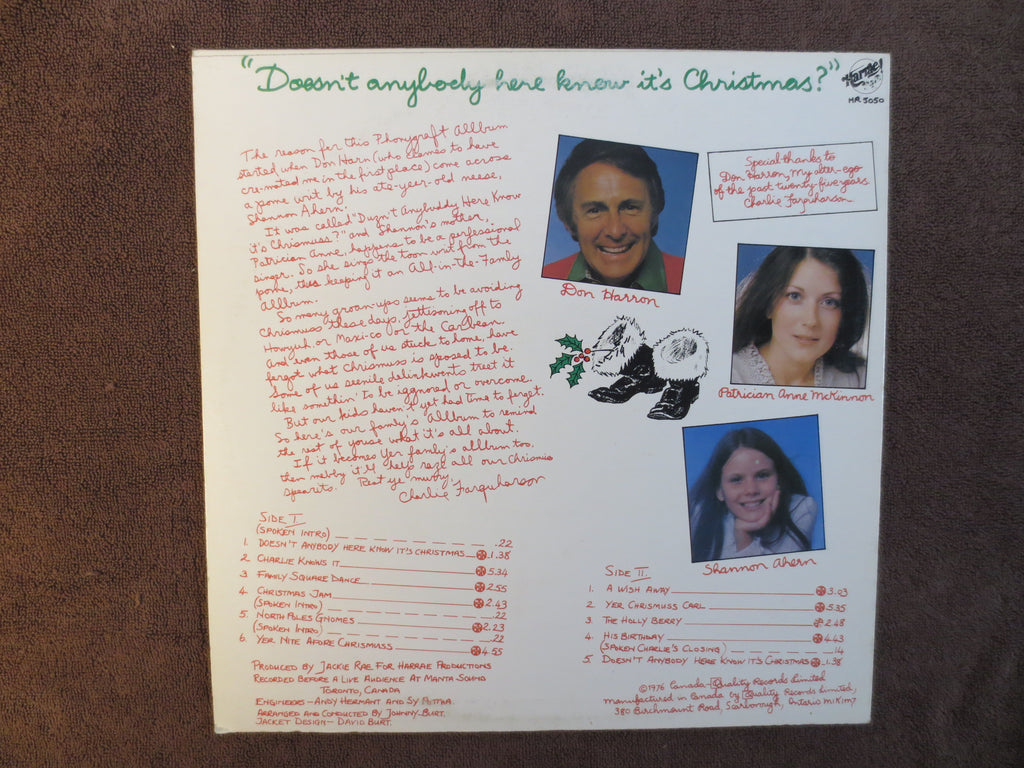 "Doesn't anybody here know it's Christmas?"
Harrae!
HR 5050
The reason for this Phonygraft Allbrum
started when Don Harn (who clames to have
cre-mated me in the first place) come acrosse
a pome writ by his ate-year-old neese,
Shannon Ahern.
It was called "Duzn't Anybuddy Here Know
it's Chrismuss?" and Shannon's mother,
Patrician Anne, happens to be a perfessional
singer. So she sings the toon writ from the
pome, thus keeping it an All-in-the-Family
Allbrum.
So many groan-ups seems to be avoiding
Chrismuss these days, jettisoning off to
Howyuh, or Maxi-co or the Caribean.
And even those of us stuck to home, have
forgot what Chrismuss is sposed to be.
Some of us seenile delinkwents treet it
like somethin' to be iggnored or overcome.
But our kids haven't yet had time to forget.
So here's our family's Allbrum to remind
the rest of youse what it's all about.
If it becomes yer family's allbrum too,
then mebby it'll help raze all our Chrismuss
spearits. Rest ye murry,
Charlie Farquharson
Special thanks to
Don Harron, my alter-ego
of the past twenty-five years.
Charlie Farquharson
Don Harron
Patrician Anne McKinnon
Shannon Ahern
Side I
(Spoken Intro) .22
1. Doesn't Anybody Here Know It's Christmas 1.38
2. Charlie Knows It 5.34
3. Family Square Dance 2.55
4. Christmas Jam 2.43
(Spoken Intro) .22
5. North Poles Gnomes 2.23
(Spoken Intro) .22
6. Yer Nite Afore Chrismuss 4.55
Produced by Jackie Rae for Harrae Productions
Recorded before a live audience at Manta Sound
Toronto, Canada
Engineers - Andy Hermant and Sy Potma
Arranged and Conducted by Johnny Burt.
Jacket Design - David Burt.
Side II
1. A Wish Away 3.03
2. Yer Chrismuss Carl 5.35
3. The Holly Berry 2.48
4. His Birthday 4.43
(Spoken Charlie's Closing) .14
5. Doesn't Anybody Here Know It's Christmas 1.38
©1976 Canada-Quality Records Limited
Manufactured in Canada by Quality Records Limited,
380 Birchmount Road, Scarborough, Ontario M1K1M7